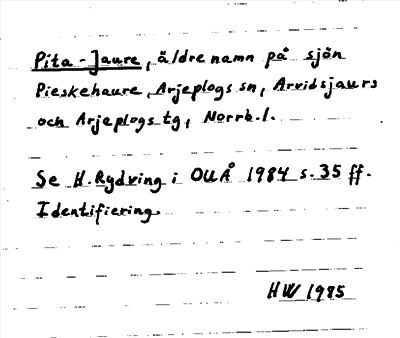 Pita-Jaure, äldre namn på sjön
Pieskehaure, Arjeplogs sn, Arvidsjaurs
och Arjeplogs tg, Norrb.l.
Se H. Rydving i OUÅ 1984 s. 35 ff.
Identifiering.
HW 1985